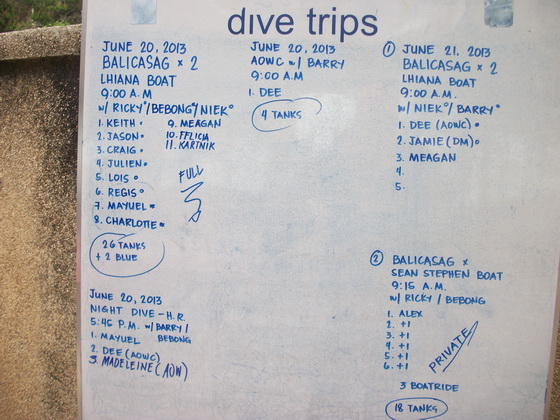 dive trips
JUNE 20, 2013
BALICASAG x 2
LHIANA BOAT
9:00 A.M
w/ RICKY°/BEBONG°/NIEK°
1. KEITH •
2. JASON •
3. CRAIG •
4. JULIEN •
5. LOIS °
6. REGIS °
7. MAYUEL •
8. CHARLOTTE •
9. MEAGAN
10. FELICIA
11. KARTNIK
FULL
26 TANKS
+ 2 BLUE
JUNE 20, 2013
AOWC w/ BARRY
9:00 A.M
1. DEE
4 TANKS
1 JUNE 21. 2013
BALICASAG x 2
LHIANA BOAT
9:00 A.M.
w/ NIEK°/ BARRY°
1. DEE (AOWC) •
2. JAMIE (DM) °
3. MEAGAN
4.
5.
JUNE 20, 2013
NIGHT DIVE - H.R.
5:45 P.M. w/ BARRY /
BEBONG
1. MAYUEL
2. DEE (AOWC)
3. MADELEINE (AOW)
2 BALICASAG x
SEAN STEPHEN BOAT
9:15 A.M.
w/ RICKY / BEBONG
1. ALEX
2. +1
3. +1
4. +1
5. +1
6. +1
PRIVATE
3 BOATRIDE
18 TANKS